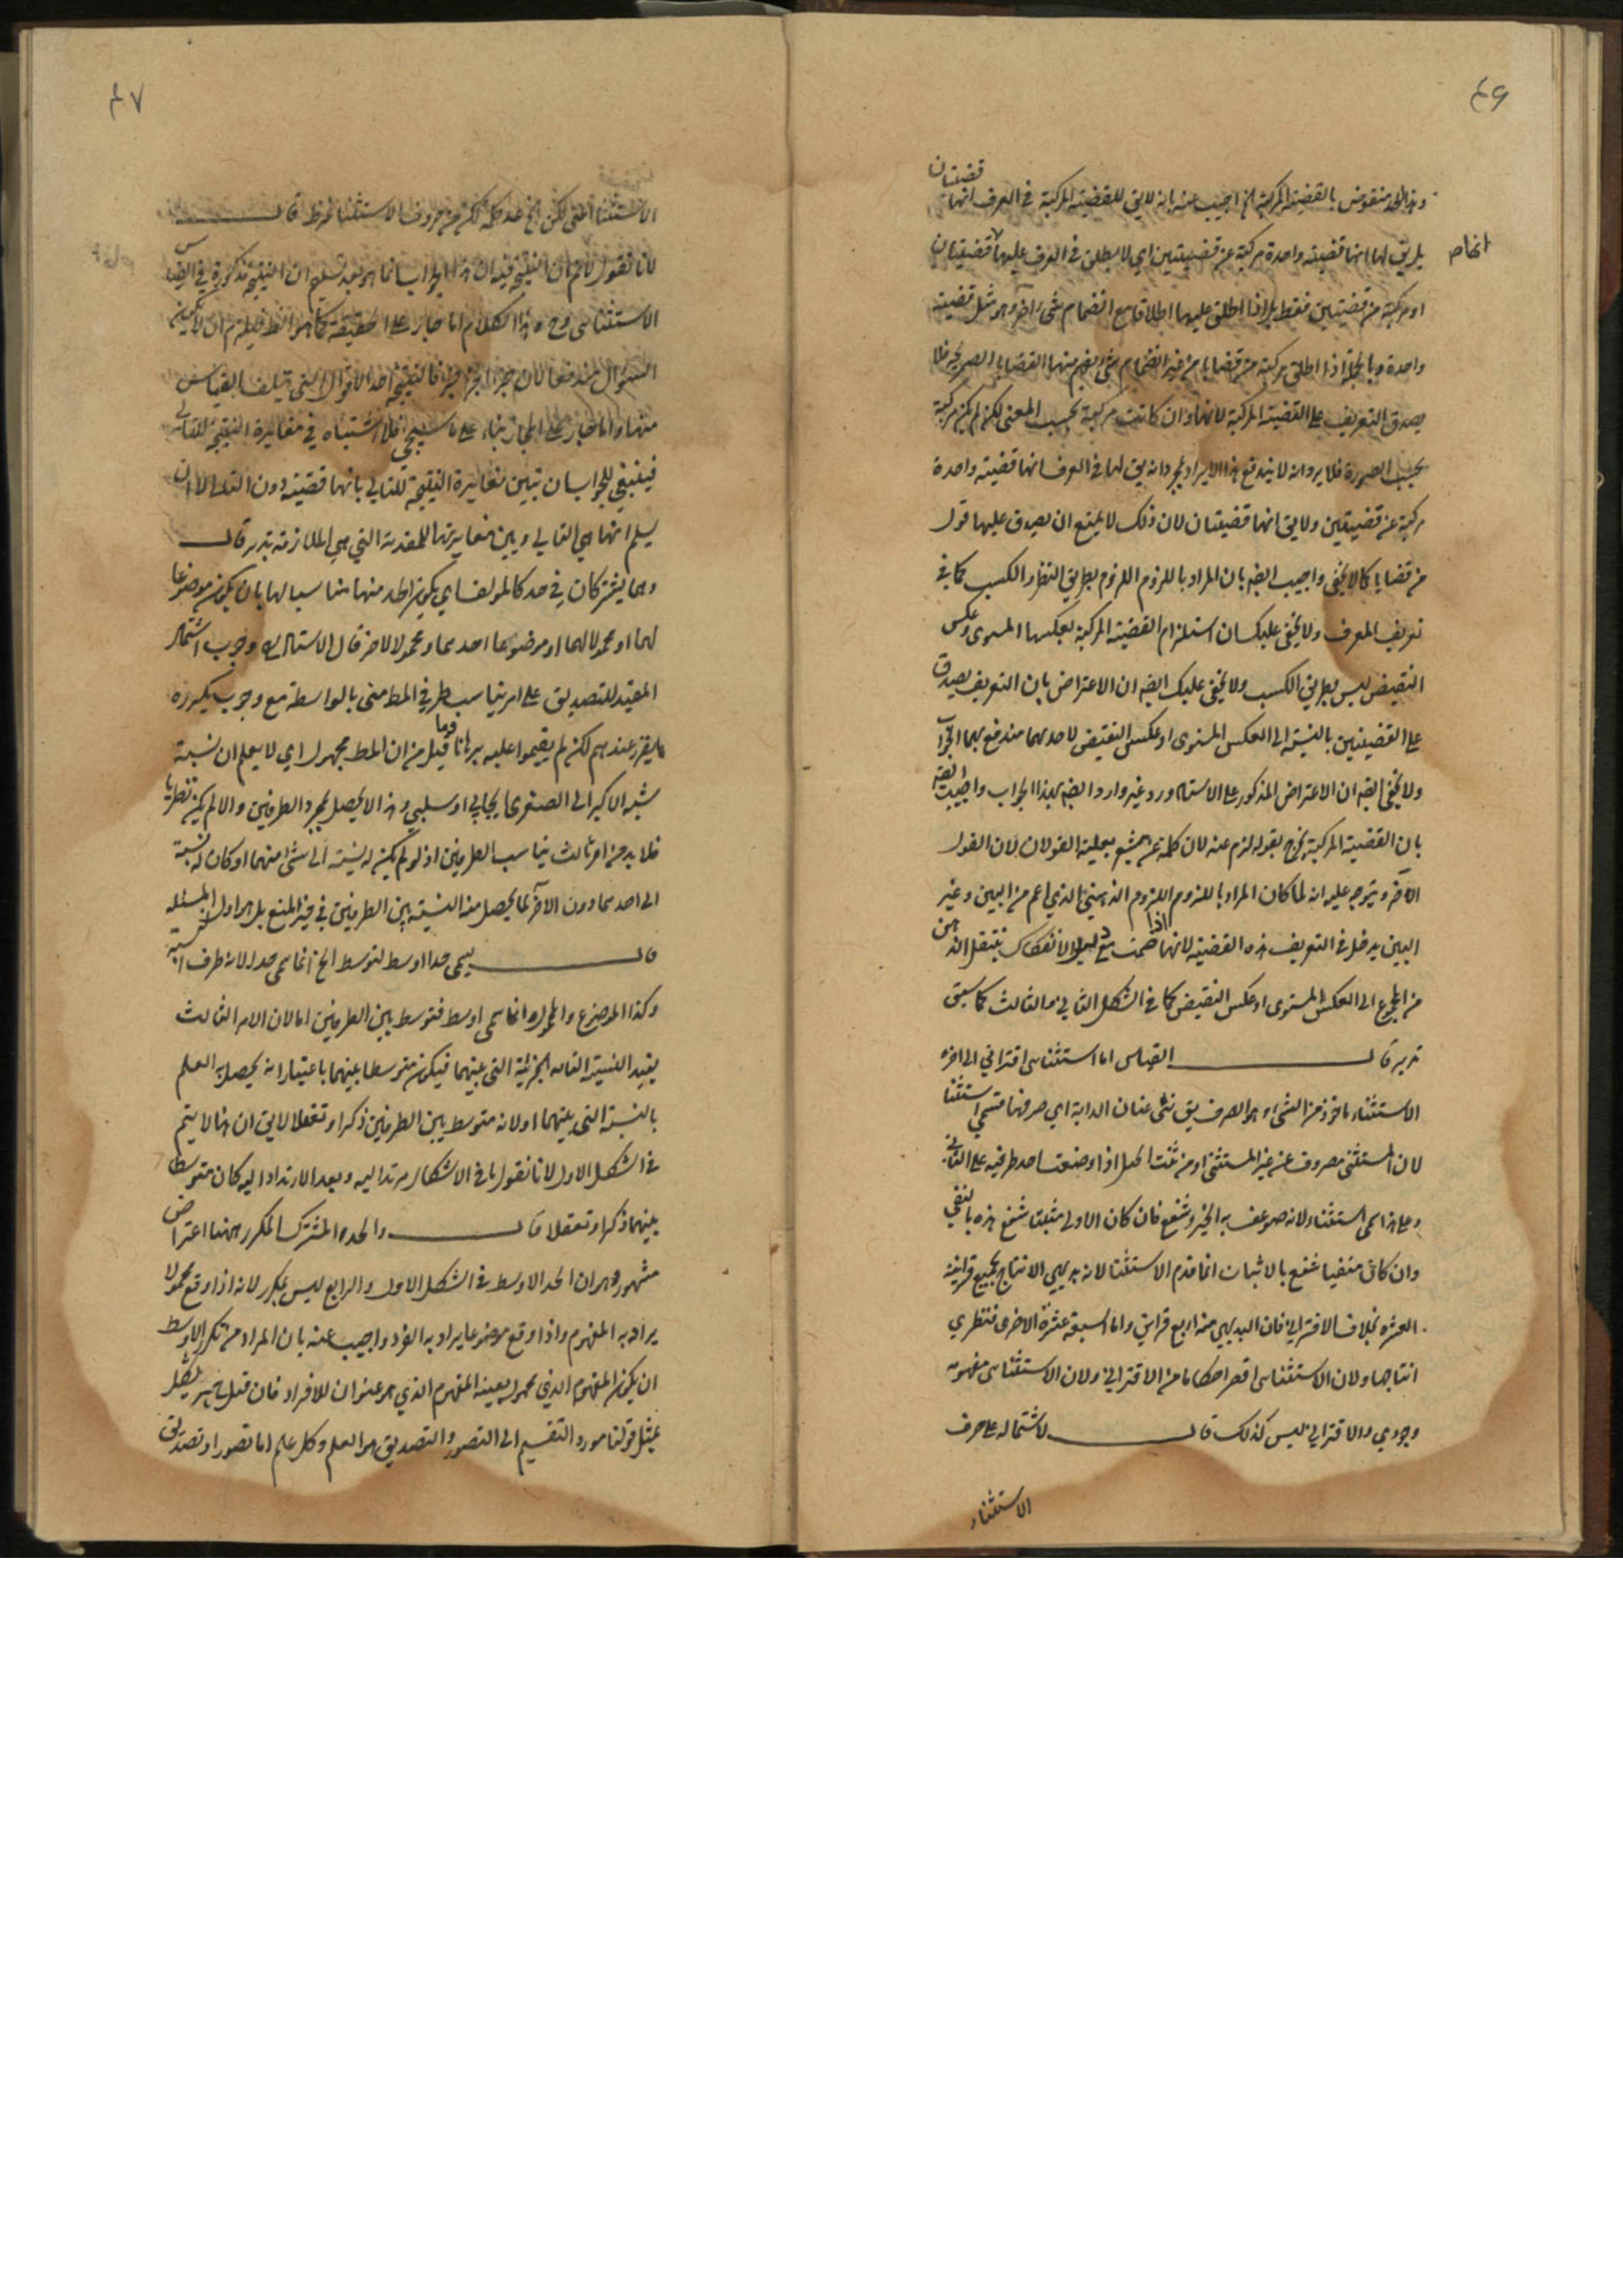 ٤٦
قضيتان
وهذا الحد منقوض بالقضية المركبة الخ اجيب عنه بانه لا يق للقضية المركبة في العرف انها
بل يق لها انها قضية واحدة مركبة عن قضيتين اي لا يطلق في العرف عليها قضيتان
او مركبة من قضيتين فقط بل اذا اطلق عليها اطلاقا مع انضمام شئ اخر وهو مثل قضية
واحدة وبالجملة اذا اطلق مركبة من قضايا من غير انضمام شئ يفهم منها القضايا الصريحة فلا
يصدق التعريف على القضية المركبة لانها وان كانت مركبة بحسب المعنى لكن لم يكن مركبة
بحسب الصورة فلا يرد انه لا يندفع هذا الايراد بمجرد انه يق لها في العرف انها قضية واحدة
مركبة عن قضيتين ولا يق انها قضيتان لان ذلك لا يمنع ان يصدق عليها قول
من قضايا كما لا يخفى واجيب ايضه بان المراد باللزوم اللزوم بطريق النظر والكسب كما في
تعريف المعرف ولا يخفى عليك ان استلزام القضية المركبة لعكسها المستوى وعكس
النقيض ليس بطريق الكسب ولا يخفى عليك ايضه ان الاعتراض بان التعريف يصدق
على القضيتين بالنسبة الى العكس المستوى او عكس النقيض لاحدهما مندفع بهما الجواب
ولا يخفى ايضه ان الاعتراض المذكور على الاستقراء ورد غير وارد ايضه بهذا الجواب واجيب ايضه
بان القضية المركبة يخرج بقوله لزم عنه لان كلمة عن يشعر بعلية القولان لان القول
الاخر ويتوجه عليه انه لما كان المراد باللزوم اللزوم الذهني الذي اعم من البين وغير
البين يدخل في التعريف هذه القضية لانها اذا ضمت مع دليل الانفكاك ينتقل الذهن
من المجموع الى العكس المستوى او عكس النقيض كما في الشكل الثاني والثالث كما سبق
تدبر قال القياس اما استثنائى اقتراني الى اخره
الاستثناء ماخوذ من الثنى وهو الصرف يق ثنى عنان الدابة اي صرفها فسمي استثنا
لان المستثنى مصروف عنه غير المستثنى او من ثنت الحبل اذا وضعت احد طرفيه على الثاني
وعلى هذا سمى استثناء لانه ضوعف به الخبر وشفع فان كان الاولى مثبتا شفع هذه بالنفي
وان كان منفيا شفع بالاثبات انما قدم الاستثنا لانه بديهي الانتاج بجميع قراينه
العشرة بخلاف الاقتراني فان البديهي منه اربع قراين واما السبعة عشرة الاخرى فنظري
انتاجها ولان الاستثنائى اقصر احكاما من الاقتراني ولان الاستثنائى مفهومه
وجودي والاقتراني ليس كذلك قال لاشتماله على حرف
الاستثناء
٤٧
الاستثنا اعنى لكن الخ عد كلمة لكن من حروف الاستثنا نظرا قال
لانا نقول لانم ان النتيجة فيه ان هذا الجواب انما هو بعد تسليم ان النتيجة مذكورة في القياس
الاستثنائى وح هذا الكلام اما جار على الحقيقة كما هو الظ فيلزم ان لا يكون
السؤال مندفعا لان جزء الجزء جزء فالنتيجة احد الاقوال التي يتالف القياس
منها واما جار على المجاز بناء على ما سيجئ فلا اشتباه في مغايرة النتيجة للتالي
فينبغي للجواب ان يبين مغايرة النتيجة للتالي بانها قضية دون التالى الا ان
يسلم انها هي التالي ويبين مغايرتها للمقدمة التي هي الملازمة تدبر قال
وهما يشتركان في حد كالمؤلف اي يكون الحد منها مناسبا لهما بان يكون موضوعا
لهما او محمولا لهما او موضوعا احدهما ومحمولا للاخر قال الاستاد وجوب اشتمال
المفيد للتصديق على امر يناسب طرفي المط منى بالواسطة مع وجوب تكرره
مما يقرر عندهم لكن لم يقيموا عليه برهانا وما قيل من ان المط مجهول اي لا يعلم ان نسبة
شبه الاكبر الى الصغرى ايجابي او سلبي وهذا لا يحصل بمجرد الطرفين والا لم يكن نظريا
فلا بد من امر ثالث يناسب الطرفين اذ لو لم يكن له نسبة الى شئ منهما او كان له نسبة
الى احدهما دون الاخر لما يحصل منه النسبة بين الطرفين في حيز المنع بل هو اول المسئله
قال يسمى حدا اوسط لتوسط الخ انما سمى حدا لانه طرف النسبة
وكذا الموضوع والمحمول انما سمى اوسط فتوسط بين الطرفين اما لان الامر الثالث
يفيد النسبة التامة الخبرية التى بينهما فيكون متوسطا بينهما باعتبار انه يحصل به العلم
بالنسبة التى بينهما او لانه متوسط بين الطرفين ذكرا وتعقلا لا يق ان هذا لا يتم
في الشكل الاول لانا نقول باقى الاشكال مرتد اليه وبعد الارتداد اليه كان متوسطا
بينهما ذكرا وتعقلا قال والحد المشترك المكرر ههنا اعتراض
مشهور وهو ان الحد الاوسط في الشكل الاول والرابع ليس بمكرر لانه اذا وقع محمولا
يراد به المفهوم واذا وقع موضوعا يراد به الفرد واجيب عنه بان المراد من تكرر الاوسط
ان يكون المفهوم الذي محمول بعينه المفهوم الذي هو عنوان للافراد فان قيل ما هو يشكل
بمثل قولنا مورد التقسيم الى التصور والتصديق هو العلم وكل علم اما تصور او تصديق